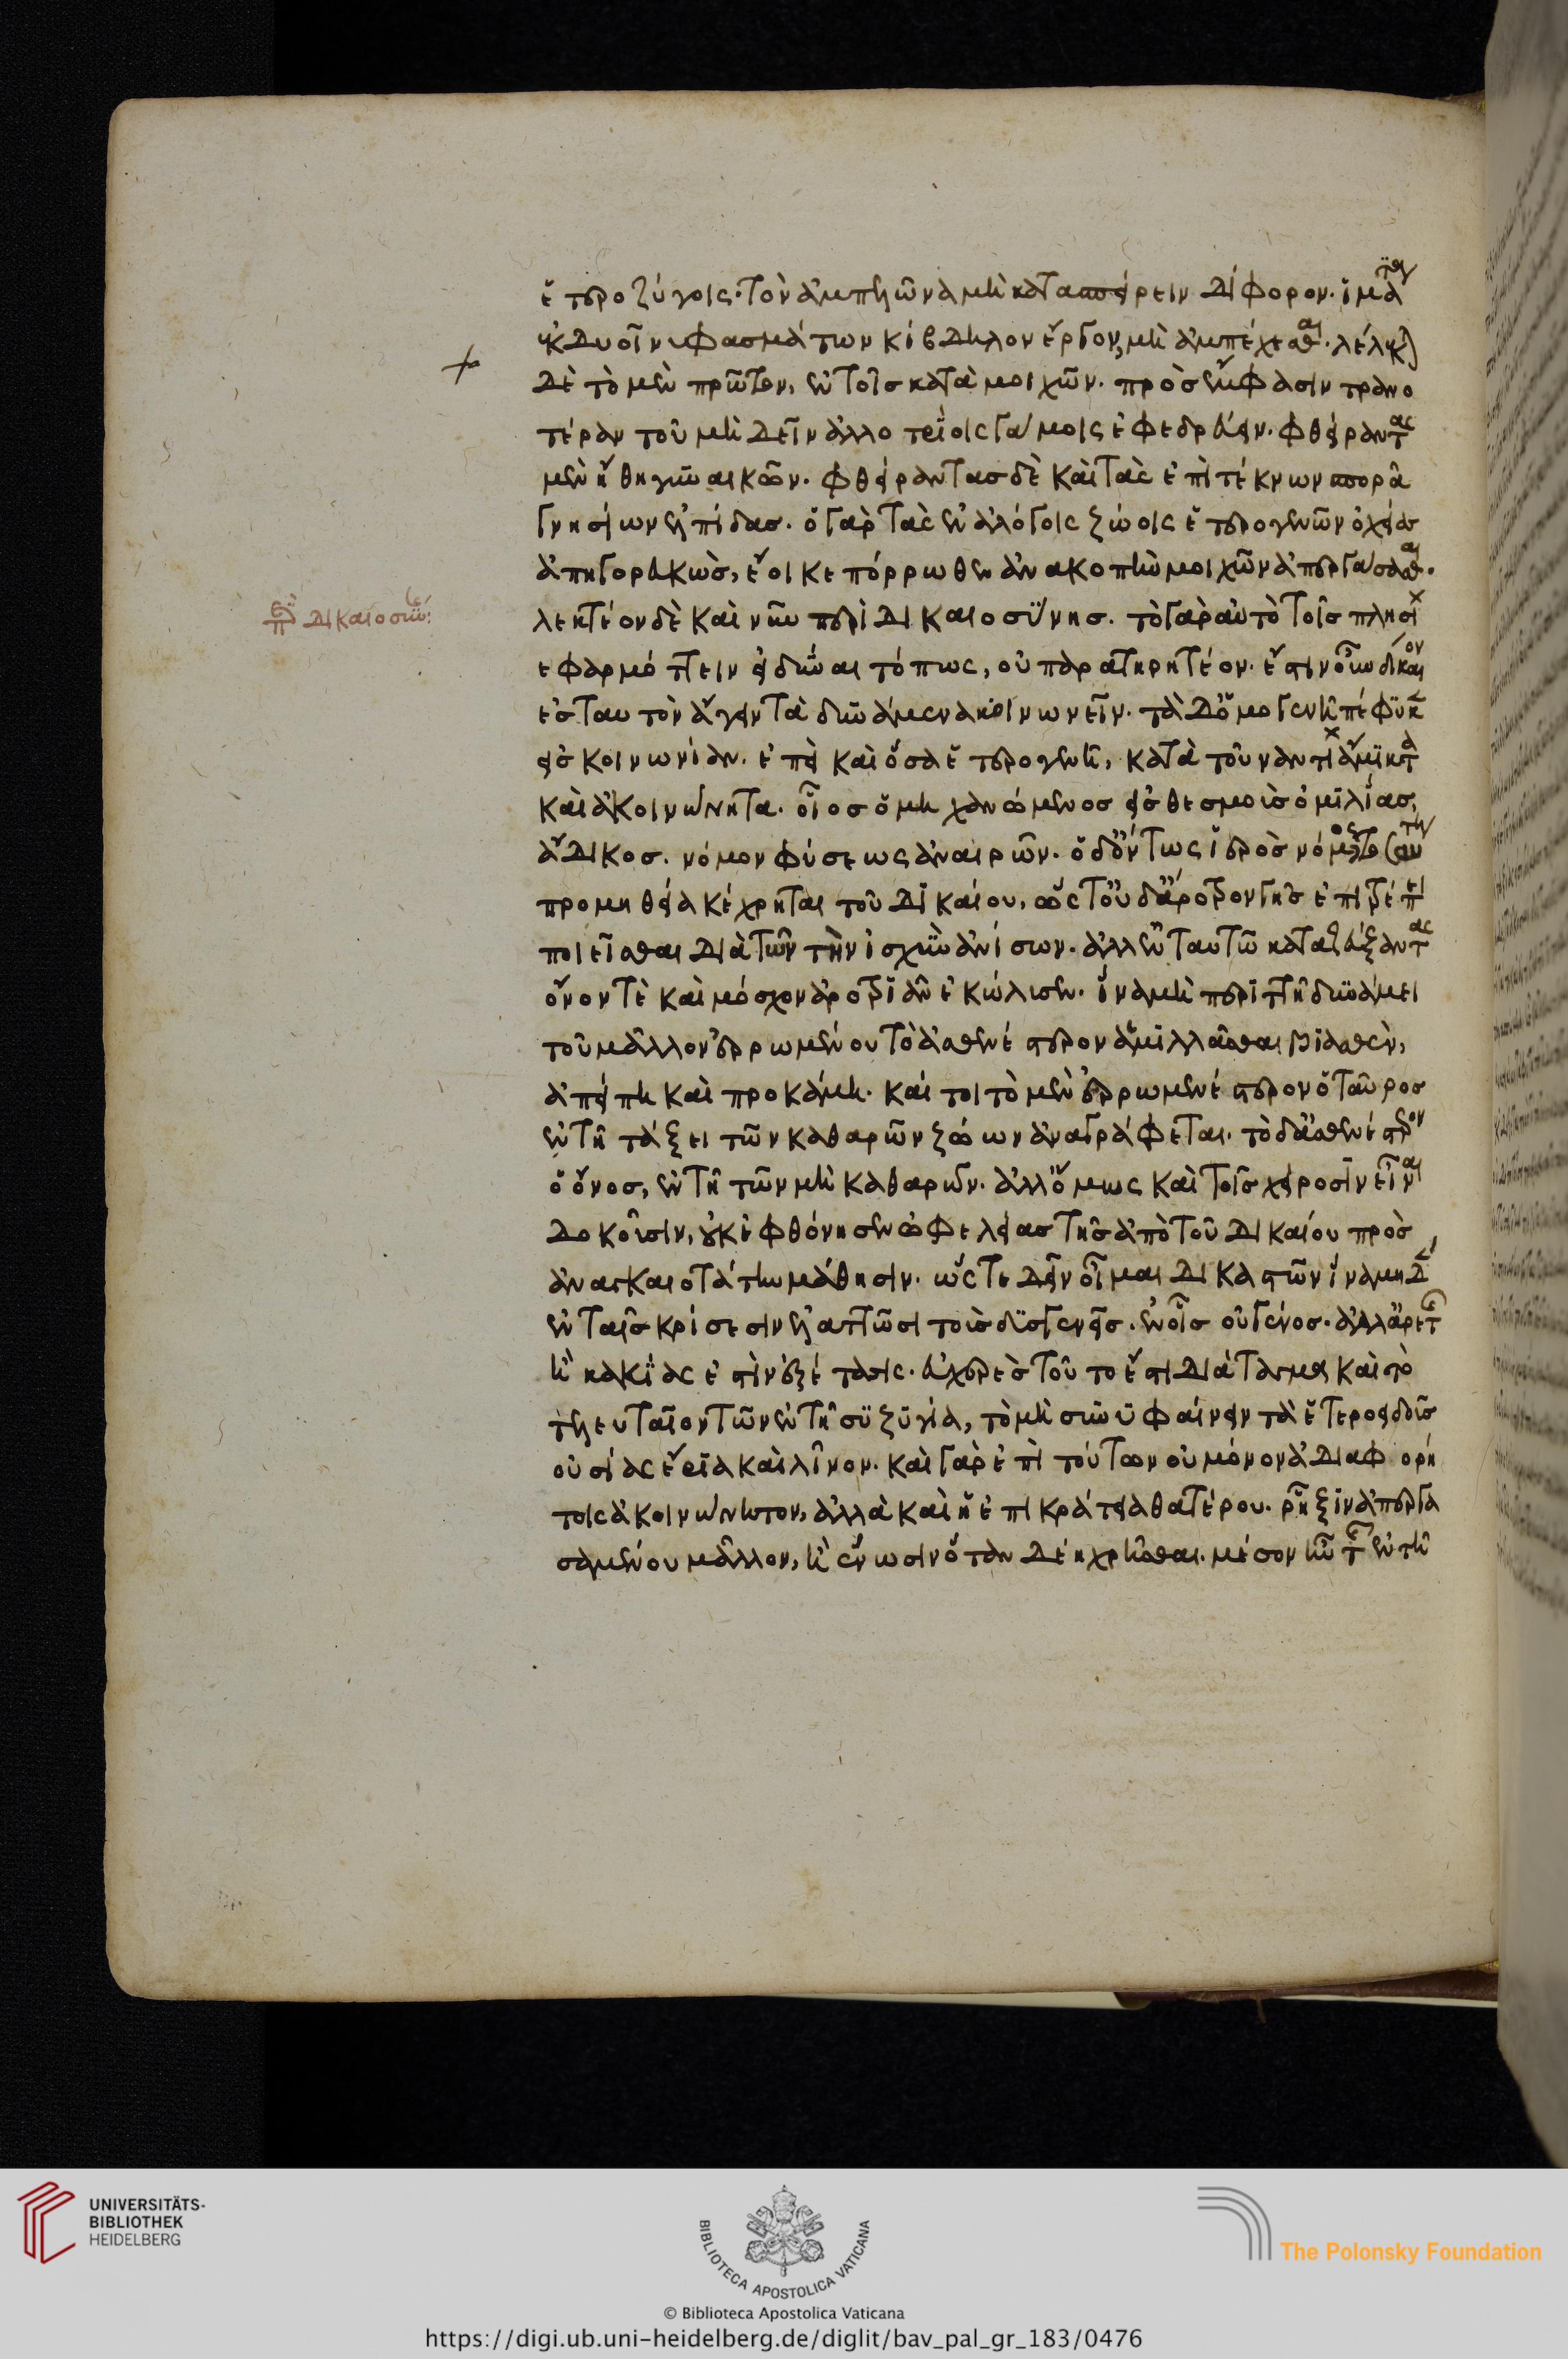 ἑτεροζύγοις· τὸν ἀμπελῶνα μὴ κατασπείρειν δίφορον· ἱμάτιον
ἐκ δυοῖν ὑφασμάτων κίβδηλον ἔργον, μὴ ἀμπέχεσθαι. λέλεκται
δὲ τὸ μὲν πρῶτον, ἐν τοῖς κατὰ μοιχῶν. πρὸς ἔμφασιν τρανο
τέραν τοῦ μὴ δεῖν ἀλλοτρίοις γάμοις ἐφεδρεύειν. φθείραντας
μὲν ἤθη γυναικῶν. φθείραντας δὲ καὶ τὰς ἐπὶ τέκνων σπορᾶ
γνησίων ἐλπίδας. ὁ γὰρ τὰς ἐν ἀλόγοις ζώοις ἑτερογενῶν ὀχείας
ἀπηγορευκὼς, ἔοικε πόρρωθεν ἀνακοπὴν μοιχῶν ἀπεργάσασθαι.
λεκτέον δὲ καὶ νῦν περὶ δικαιοσύνης. τὸ γὰρ αὐτὸ τοῖς πλείοσι
ἐφαρμόττειν εἰ δύναι τό πως, οὐ παρατηρητέον. ἔστιν οὖν δίκαιον
ἐς ταυτὸν ἄγειν τὰ δυνάμενα κοινωνεῖν. τὰ δ' ὁμογενῆ πέφυκε
εἰς κοινωνίαν. ἐπεὶ καὶ ὅσα ἑτερογενῆ, κατὰ τοὐναντίον ἄμικτα
καὶ ἀκοινώνητα. οἷος ὁ μηχανώμενος εἰς θεσμοὺς ὁμιλίας,
ἄδικος. νόμον φύσεως ἀναιρῶν. ὁ δ' ὄντως ἱερὸς νόμος τοσαύτη
προμηθεία κέχρηται τοῦ δικαίου, ὥστ' οὐδ' ἄροτρον γῆς ἐπιτρέπει
ποιεῖσθαι διὰ τῶν τὴν ἰσχὺν ἀνίσων. ἀλλ' ἐν ταυτῶ καταζεύξαντας
ὄνον τὲ καὶ μόσχον ἀροτριᾶν ἐκώλυσεν. ἵνα μὴ περιττῆ δυνάμει
τοῦ μᾶλλον ἐρρωμένου τὸ ἀσθενέστερον ἁμιλλᾶσθαι βιασθὲν,
ἀπείπη καὶ προκάμη. καίτοι τὸ μὲν ἐρρωμενέστερον ὁ ταῦρος
ἐν τῆ τάξει τῶν καθαρῶν ζώων ἀναγράφεται. τὸ δ' ἀσθενέστερον
ὁ ὄνος, ἐν τῆ τῶν μὴ καθαρῶν. ἀλλ' ὅμως καὶ τοῖς χείροσιν εἶναι
δοκοῦσιν, οὐκ ἐφθόνησεν ὠφελείας τῆς ἀπὸ τοῦ δικαίου πρὸς
ἀναγκαιοτάτην μάθησιν. ὥστε δεῖν οἶμαι δικαστῶν ἵνα μηδ'
ἐν ταῖς κρίσεσιν ἐλαττῶσι τοὺς δυσγενεῖς. ἐν οἷς οὐ γένος. ἀλλ' ἀρετῆς
ἢ κακίας ἐστὶν ἐξέτασις. τοῦτο ἐστι διάταγμα καὶ τὸ
τελευταῖον τῶν ἐν τῆ συζυγία, τὸ μὴ συνυφαίνειν τὰ ἑτεροειδεῖς
οὐσίας ἔρια καὶ λῖνον. καὶ γὰρ ἐπὶ τούτων οὐ μόνον ἀ
τοις ἀκοινώνητον, ἀλλὰ καὶ ἡ ἐπικράτεια θατέρου. ῥῆξιν ἀπεργα
σαμένου μᾶλλον, ἢ ἕνωσιν ὅταν δέη χρῆσθαι. μέσον ἦν τῆς ἐν τῆ
περὶ δικαιοσύνης:
UNIVERSITÄTS-
BIBLIOTHEK
HEIDELBERG
BIBLIOTECA APOSTOLICA VATICANA
The Polonsky Foundation
© Biblioteca Apostolica Vaticana
https://digi.ub.uni-heidelberg.de/diglit/bav_pal_gr_183/0476